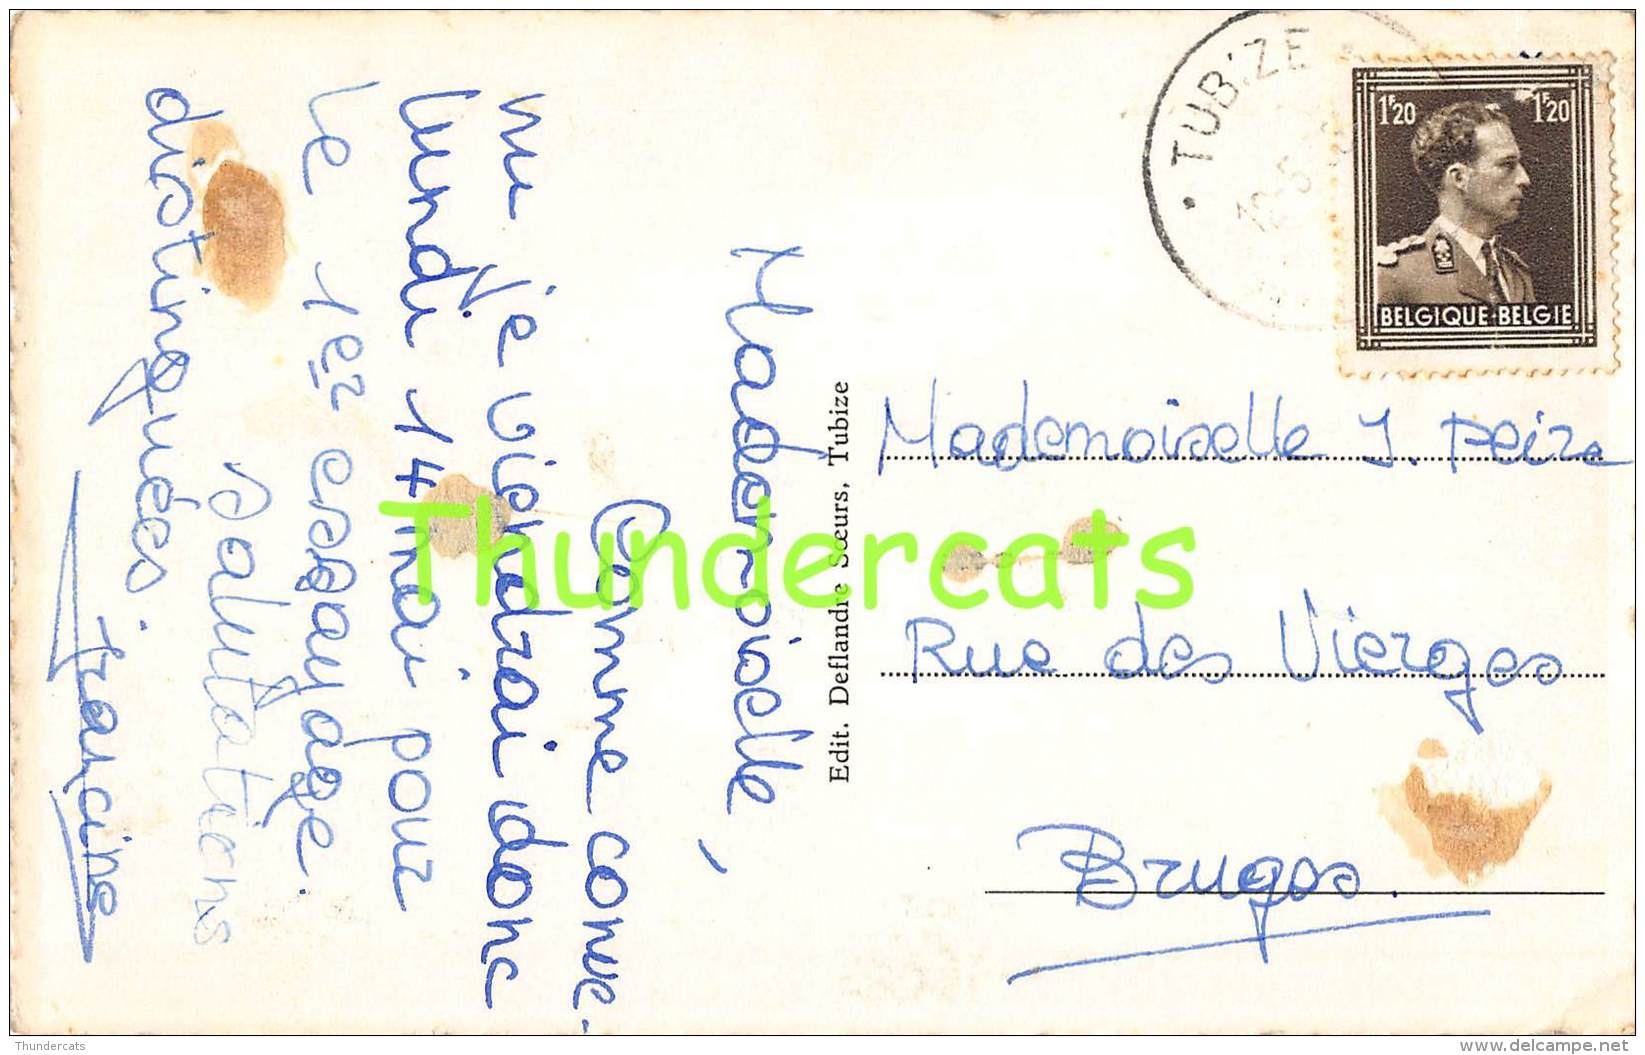 Mademoiselle,
Comme conve-
nu je viendrai donc
lundi 14 mai pour
le 1er essayage.
Salutations
distinguées.
Francine
Edit. Deflandre Sœurs, Tubize
TUBIZE
1F20
1F20
BELGIQUE·BELGIE
Mademoiselle J. Peire
Rue des Vierges
Bruges.
Thundercats
Thundercats
delcampe.net